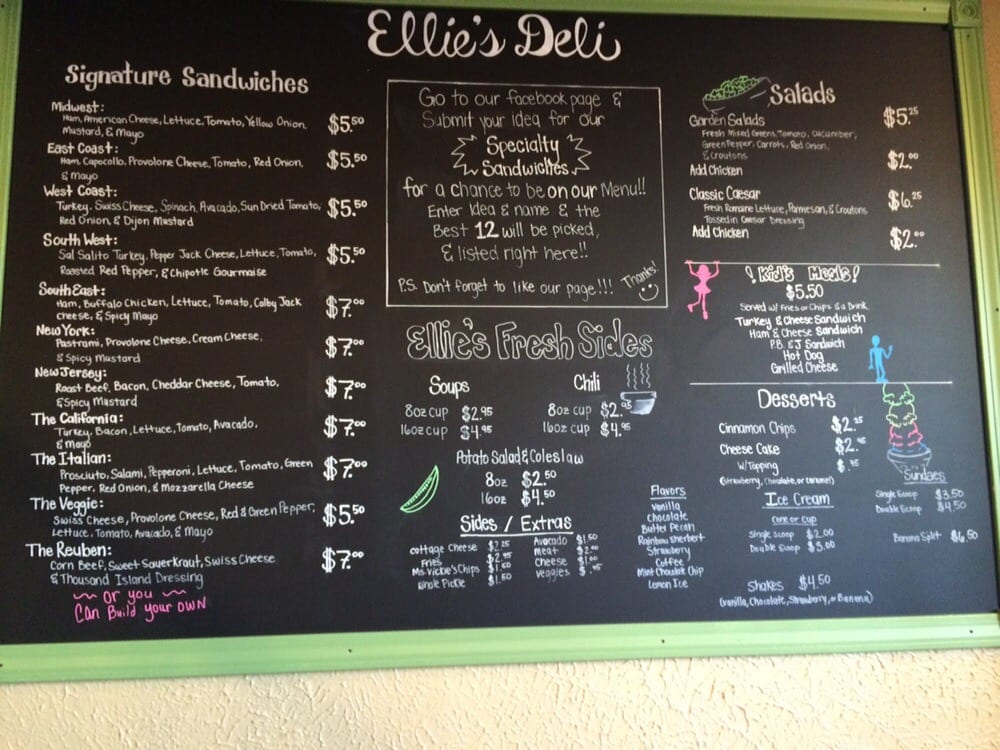 Ellie's Deli
Signature Sandwiches
Midwest:
Ham, American Cheese, Lettuce, Tomato, Yellow Onion,
Mustard, & Mayo
$5.50
East Coast:
Ham, Capocollo, Provolone Cheese, Tomato, Red Onion,
& Mayo
$5.50
West Coast:
Turkey, Swiss Cheese, Spinach, Avacado, Sun Dried Tomato,
Red Onion, & Dijon Mustard
$5.50
South West:
Sal Salito Turkey, Pepper Jack Cheese, Lettuce, Tomato,
Roasted Red Pepper, & Chipotle Gourmaise
$5.50
South East:
Ham, Buffalo Chicken, Lettuce, Tomato, Colby Jack
Cheese, & Spicy Mayo
$7.00
New York:
Pastrami, Provolone Cheese, Cream Cheese,
& Spicy Mustard
$7.00
New Jersey:
Roast Beef, Bacon, Cheddar Cheese, Tomato,
& Spicy Mustard
$7.00
The California:
Turkey, Bacon, Lettuce, Tomato, Avocado,
& Mayo
$7.00
The Italian:
Prosciuto, Salami, Pepperoni, Lettuce, Tomato, Green
Pepper, Red Onion, & Mozzarella Cheese
$7.00
The Veggie:
Swiss Cheese, Provolone Cheese, Red & Green Pepper,
Lettuce, Tomato, Avacado, & Mayo
$5.50
The Reuben:
Corn Beef, Sweet Sauerkraut, Swiss Cheese
& Thousand Island Dressing
$7.00
or you
Can Build your OWN
Go to our facebook page &
Submit your idea for our
Specialty
Sandwiches
for a chance to be on our Menu!!
Enter Idea & name & the
Best 12 will be picked,
& listed right here!!
P.S. Don't forget to like our page!!! Thanks!
Ellie's Fresh Sides
Soups
8oz cup $2.95
16oz cup $4.95
Chili
8oz cup $2.95
16oz cup $4.95
Potato Salad & Coleslaw
8oz $2.50
16oz $4.50
Sides / Extras
Cottage Cheese $2.25
Fries $2.95
Ms Vickie's Chips $1.50
Whole Pickle $1.50
Avocado $1.50
Meat $2.00
Cheese $1.00
Veggies $.95
Flavors
Vanilla
Chocolate
Butter Pecan
Rainbow Sherbert
Strawberry
Coffee
Mint Chocolate Chip
Lemon Ice
Salads
Garden Salads $5.25
Fresh Mixed Greens, Tomato, Cucumber,
Green Pepper, Carrots, Red Onion,
& Croutons
Add Chicken $2.00
Classic Caesar $6.25
Fresh Romaine Lettuce, Parmesan, & Croutons
Tossed in Caesar Dressing
Add Chicken $2.00
! Kid's Meals !
$5.50
Served w/ Fries or Chips & a Drink
Turkey & Cheese Sandwich
Ham & Cheese Sandwich
P.B. & J Sandwich
Hot Dog
Grilled Cheese
Desserts
Cinnamon Chips $2.25
Cheese Cake $2.95
W/ Topping $.95
(Strawberry, Chocolate, or Caramel)
Ice Cream
Cone or Cup
Single Scoop $2.00
Double Scoop $3.00
Shakes $4.50
(Vanilla, Chocolate, Strawberry, or Banana)
Sundaes
Single Scoop $3.50
Double Scoop $4.50
Banana Split $6.50